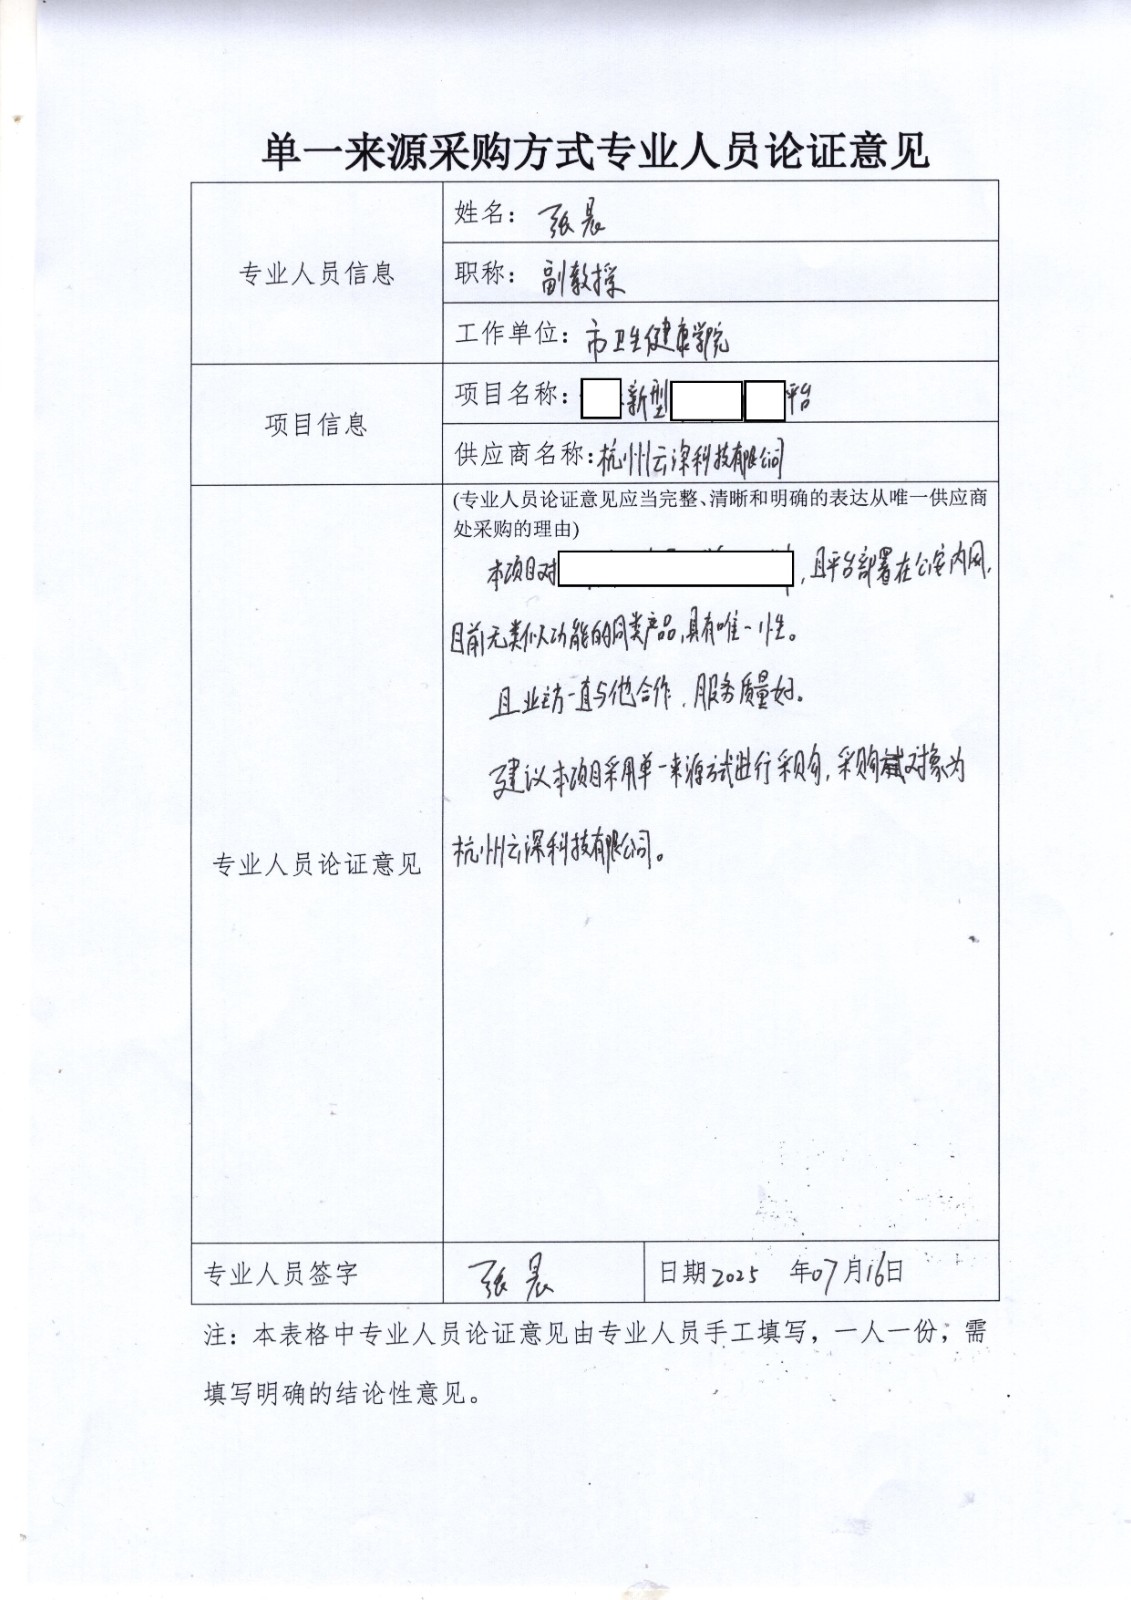 单一来源采购方式专业人员论证意见
专业人员信息
姓名：张晨
职称：副教授
工作单位：市卫生健康学院
项目信息
项目名称：新型平台
供应商名称：杭州云深科技有限公司
专业人员论证意见
(专业人员论证意见应当完整、清晰和明确的表达从唯一供应商
处采购的理由)
本项目对，且平台部署在公安内网，
目前无类似功能的同类产品，具有唯一性。
且业主方一直与他合作，服务质量好。
建议本项目采用单一来源方式进行采购，采购对象为
杭州云深科技有限公司。
专业人员签字
张晨
日期2025 年07月16日
注：本表格中专业人员论证意见由专业人员手工填写，一人一份，需
填写明确的结论性意见。